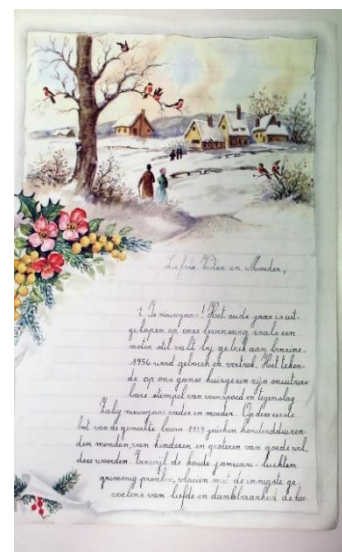 Liefste Vader en Moeder,
't Is nieuwjaar! Het oude jaar is uit-
gelopen op onze levensweg zoals een
motor stil valt bij gebrek aan benzine.
1956 werd geboren en vertrok. Het teken-
de op ons ganse huisgezin zijn onuitwis-
bare stempel van voorspoed en tegenslag.
Zalig nieuwjaar vader en moeder. Op deze eerste
bot van de gemaakte boom 1957 juichen honderdduizen-
den monden van kinderen en groteren van goede wil,
deze woorden. Terwijl de koude januari-luchten
grimmig pronken, vloeien met de innigste ge-
voelens van liefde en dankbaarheid de har-